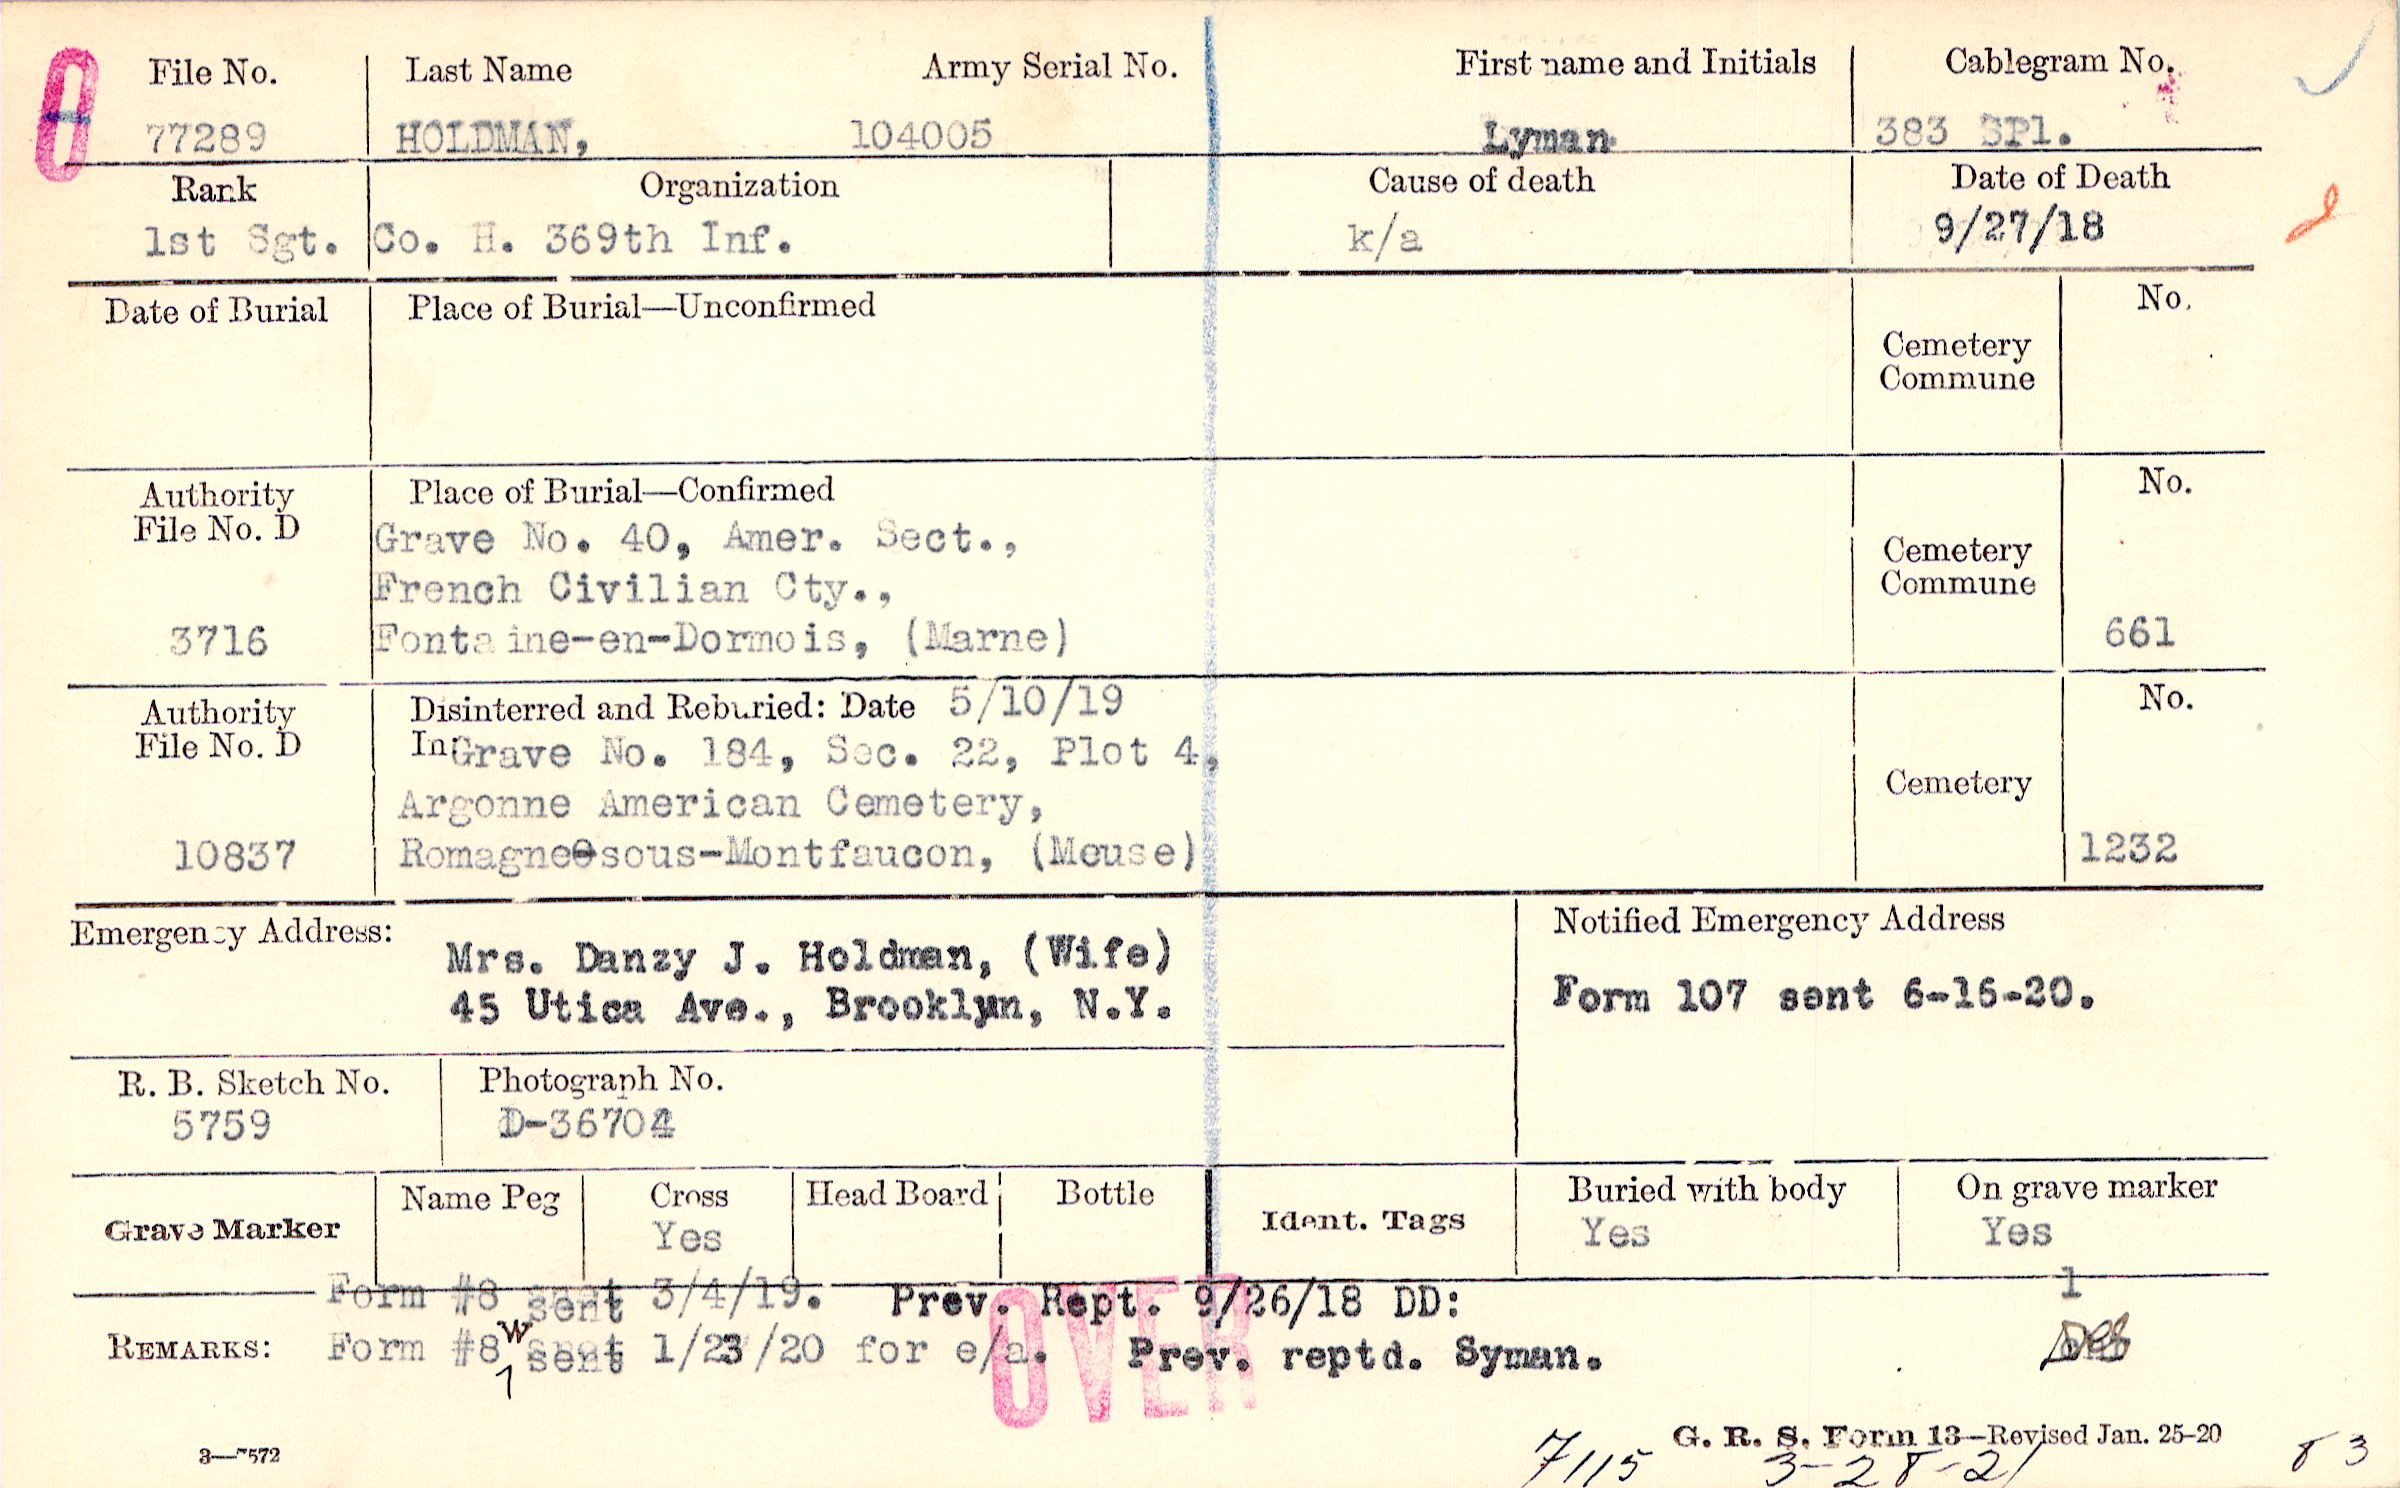 O
File No. Last Name Army Serial No. First name and Initials Cablegram No.
77289 HOLDMAN, 104005 Lyman 383 SPl.
Rank Organization Cause of death Date of Death
1st Sgt. Co. H. 369th Inf. k/a 9/27/18
Date of Burial Place of Burial—Unconfirmed No.
Cemetery
Commune
Authority
File No. D
Place of Burial—Confirmed No.
Grave No. 40, Amer. Sect.,
French Civilian Cty.,
Cemetery
Commune
3716 Fontaine-en-Dormois, (Marne) 661
Authority
File No. D
Disinterred and Reburied: Date 5/10/19 No.
In Grave No. 184, Sec. 22, Plot 4,
Argonne American Cemetery, Cemetery
10837 Romagne-sous-Montfaucon, (Meuse) 1232
Emergency Address: Notified Emergency Address
Mrs. Danzy J. Holdman, (Wife)
45 Utica Ave., Brooklyn, N.Y. Form 107 sent 6-16-20.
R. B. Sketch No. Photograph No.
5759 D-36704
Grave Marker Name Peg Cross Head Board Bottle Ident. Tags Buried with body On grave marker
Yes Yes Yes
1
Form #8 sent 3/4/19. Prev. Rept. 9/26/18 DD:
REMARKS: Form #8 W sent 1/23/20 for e/a. Prev. reptd. Syman.
1
OVER
3—7572
G. R. S. Form 13—Revised Jan. 25-20
7115 3-28-21 83